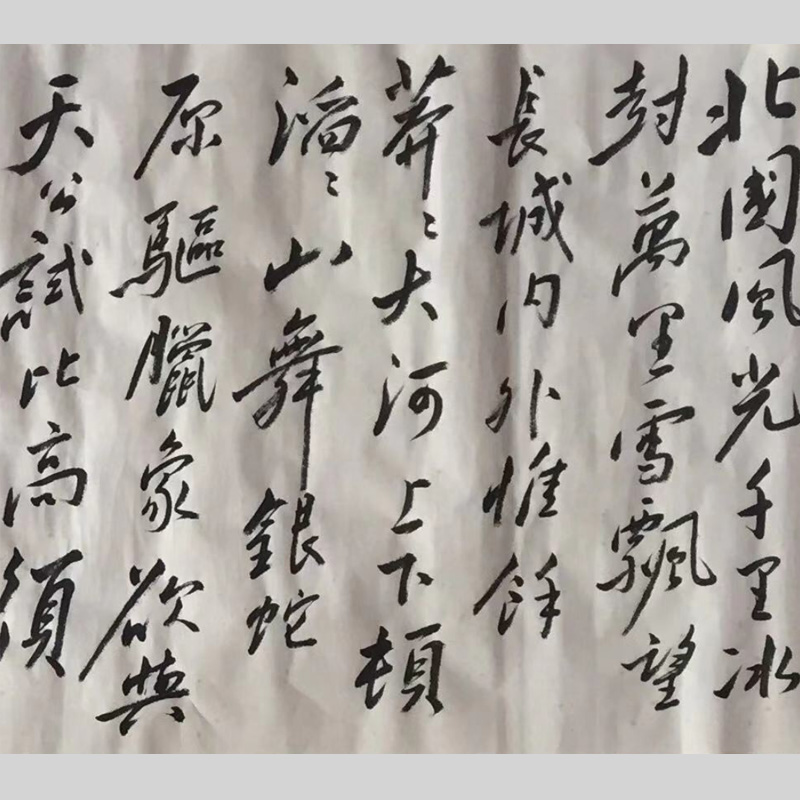 北國風光千里冰
封萬里雪飄望
長城內外惟餘
莽〻大河上下頓
滔〻山舞銀蛇
原驅臘象欲與
天公試比高須